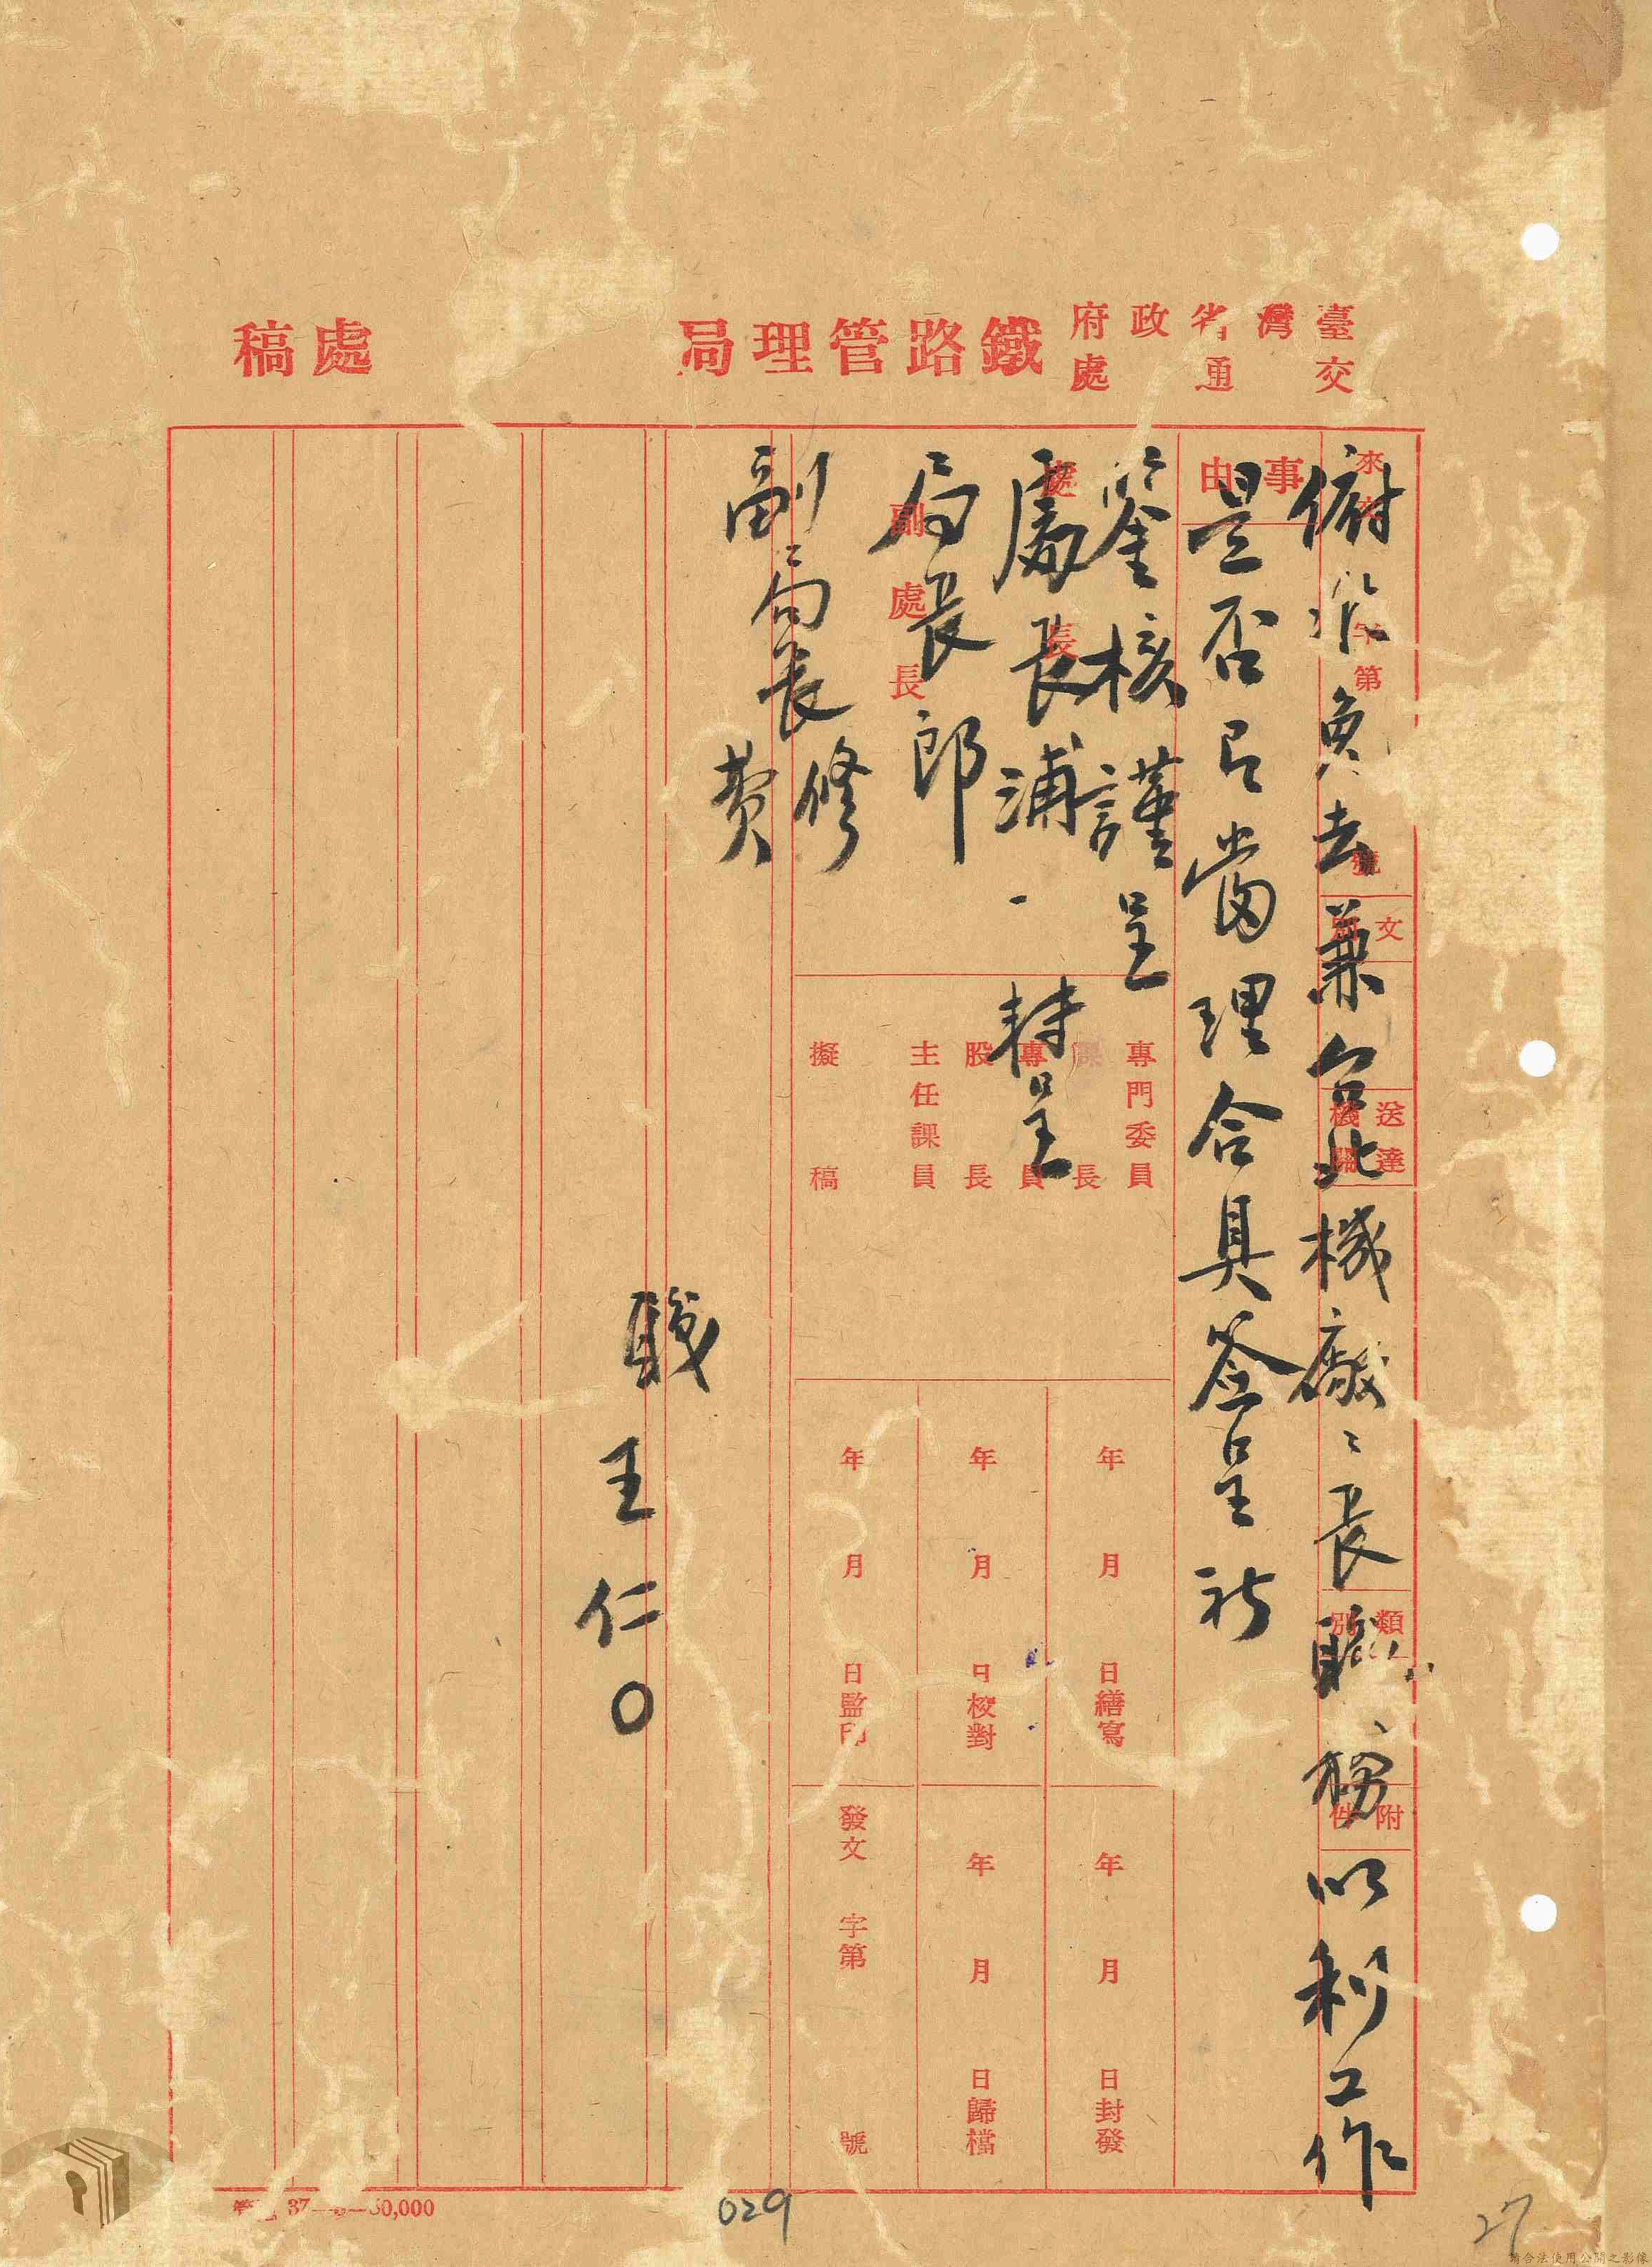 臺灣省政府
交通處
鐵路管理局
處稿
來文
字第
號
文別
送達機關
類別
附件
事由
俯准免去兼台北機廠々長職務以利工作
是否已當理合具簽呈祈
鉴核謹呈
處長浦 . 轉呈
局長郎
副々局長修
費
職王仁〇
處長
副處長
專門委員
課長
專員
股長
主任課員
擬稿
年月日繕寫
年月日校對
年月日監印
年月日封發
年月日歸檔
發文 字第 號
50,000
029
27
請合法使用公開之影像